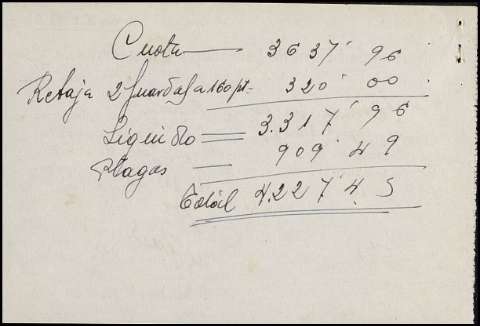 Cuota — 3637' 96
Rebaja 2 guardas a 160 pt. - 320' 00
Liquido = 3.317' 96
Plagas — 909' 49
Total 4.227' 45